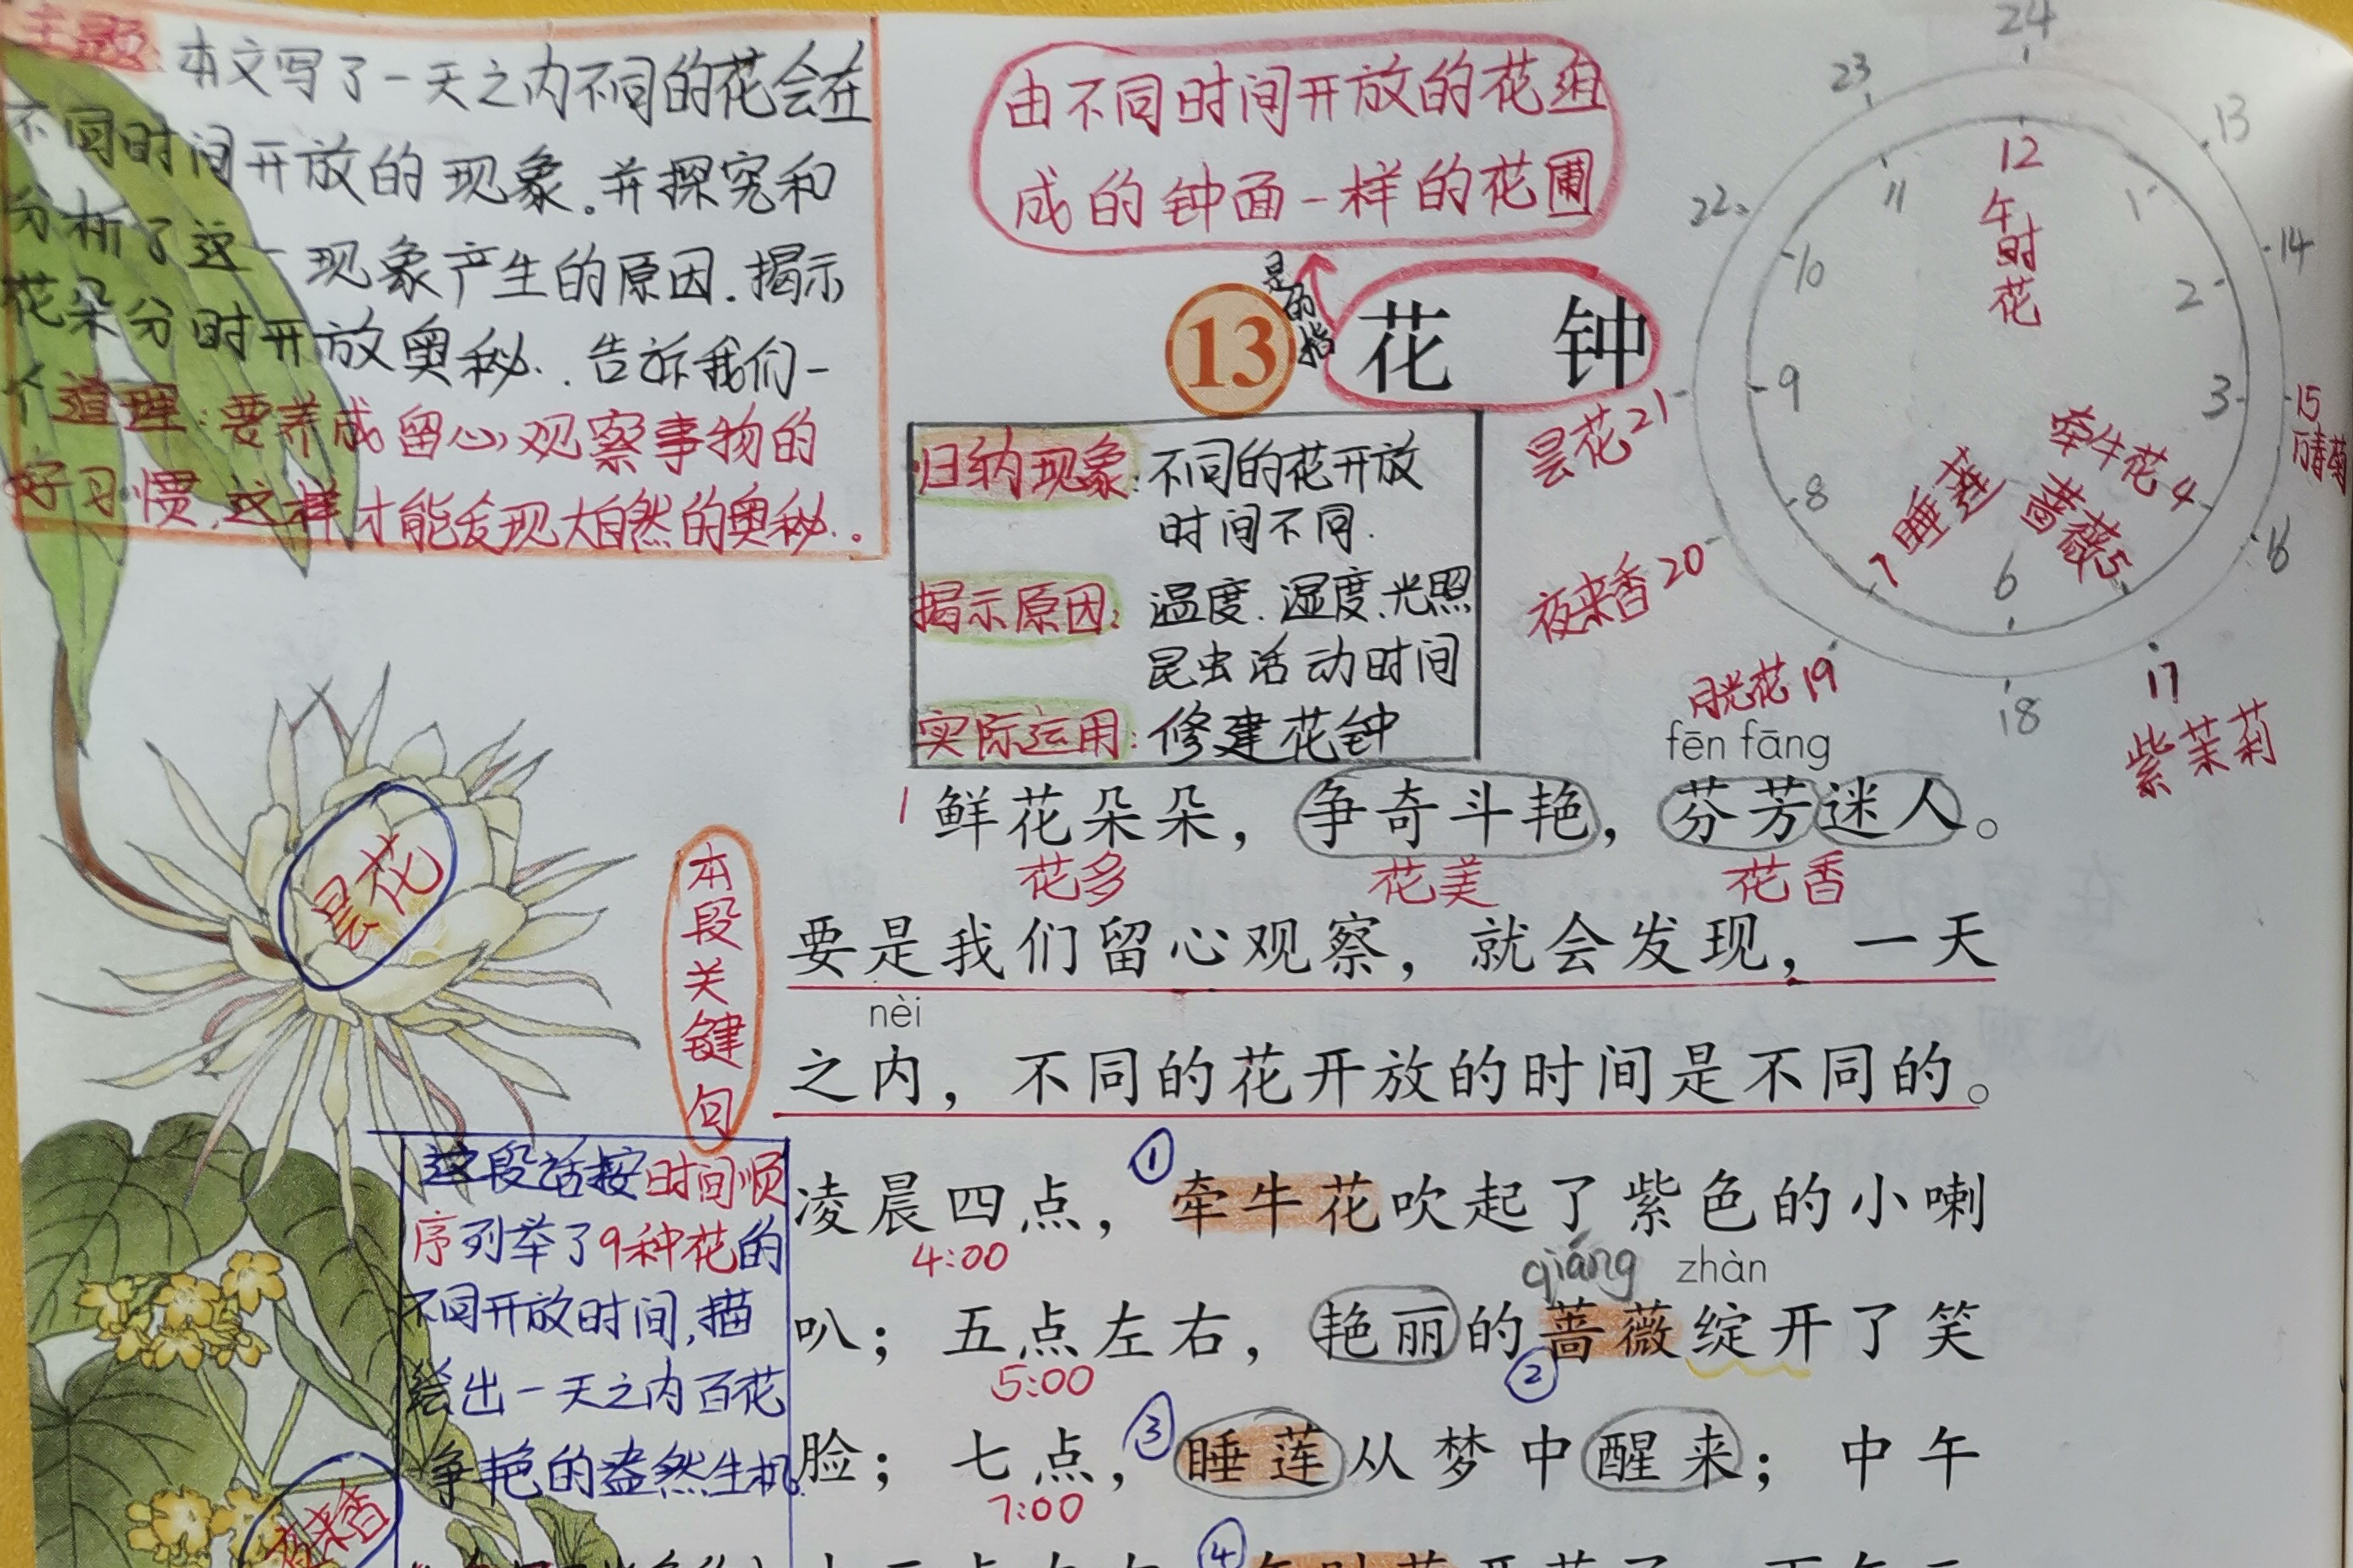 主题:本文写了一天之内不同的花会在
不同时间开放的现象。并探究和
分析了这一现象产生的原因.揭示
花朵分时开放奥秘..告诉我们一
个道理:要养成留心观察事物的
好习惯,这样才能发现大自然的奥秘..。
由不同时间开放的花组
成的钟面一样的花圃
是
的
13
花 钟
归纳现象:不同的花开放
时间不同.
揭示原因:温度.湿度.光照
昆虫活动时间
实际运用:修建花钟
24
23
13
12
11
1
午时花
22
14
10
2
昙花21
9
3
15
万寿菊
牵牛花4
8
蔷薇5
睡莲
7
6
16
夜来香20
月光花19
18
17
紫茉莉
fēn fāng
1 鲜花朵朵，争奇斗艳，芬芳迷人。
花多 花美 花香
昙花
本段关键句
要是我们留心观察，就会发现，一天
nèi
之内，不同的花开放的时间是不同的。
这段话按时间顺
序列举了9种花的
不同开放时间,描
绘出一天之内百花
争艳的盎然生机
①
凌晨四点，牵牛花吹起了紫色的小喇
4:00
qiáng zhàn
叭；五点左右，艳丽的蔷薇绽开了笑
5:00 ②
③
脸；七点，睡莲从梦中醒来；中午
7:00
夜来香
④